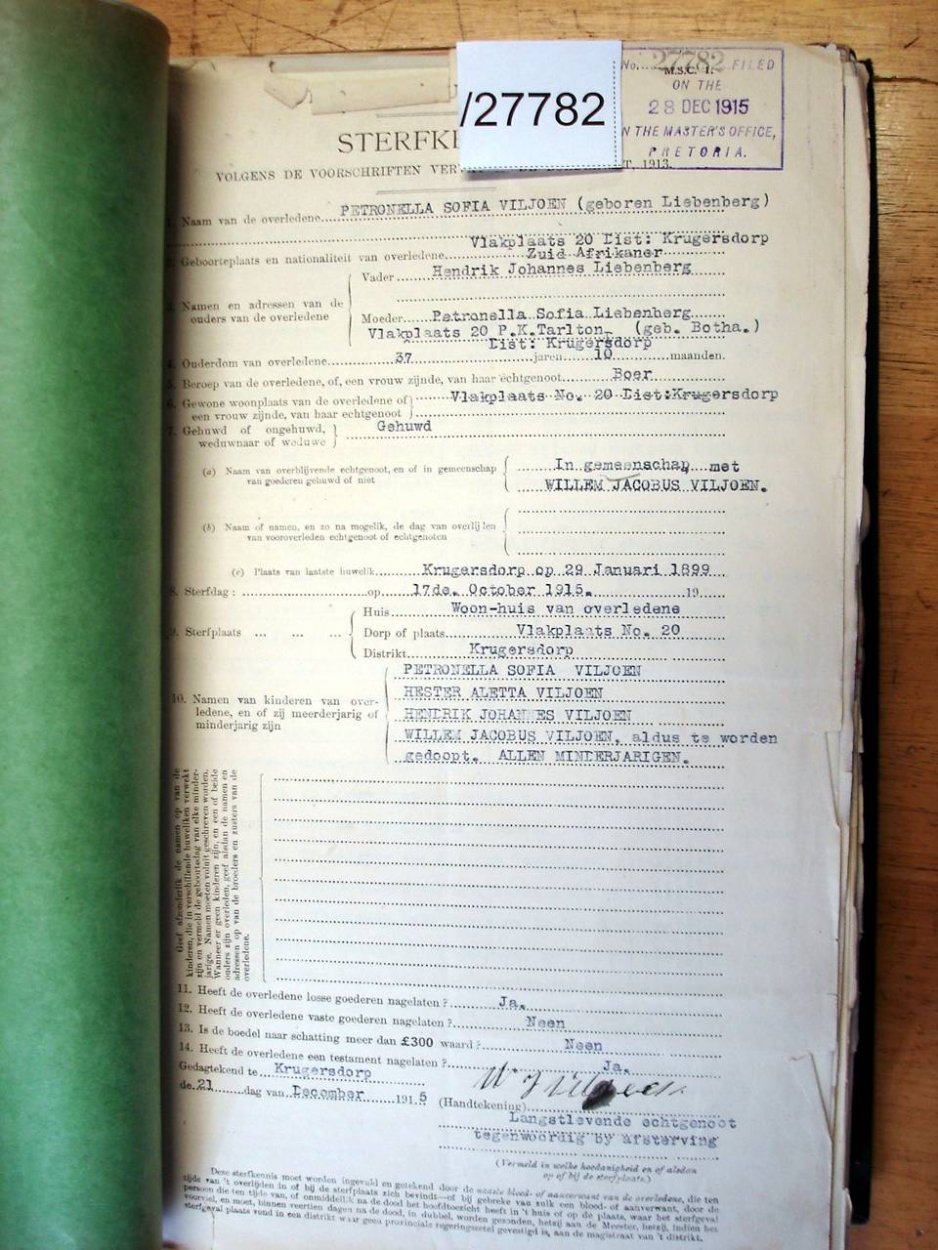 /27782
No. 27782 FILED
M.S.C. 1.
ON THE
28 DEC 1915
N THE MASTER'S OFFICE,
PRETORIA.
STERFKE
VOLGENS DE VOORSCHRIFTEN VER 1913.
1. Naam van de overledene PETRONELLA SOFIA VILJOEN (geboren Liebenberg)
Vlakplaats 20 Dist: Krugersdorp
2. Geboorteplaats en nationaliteit van overledene Zuid Afrikaner
3. Namen en adressen van de ouders van de overledene
Vader Hendrik Johannes Liebenberg
Moeder Petronella Sofia Liebenberg
Vlakplaats 20 P.K.Tarlton, (geb. Botha.)
Dist: Krugersdorp
4. Ouderdom van overledene 37 jaren 10 maanden.
5. Beroep van de overledene, of, een vrouw zijnde, van haar echtgenoot Boer
6. Gewone woonplaats van de overledene of Vlakplaats No. 20 Dist:Krugersdorp
een vrouw zijnde, van haar echtgenoot
7. Gehuwd of ongehuwd, Gehuwd
weduwnaar of weduwe
(a) Naam van overblijvende echtgenoot, en of in gemeenschap In gemeenschap met
van goederen gehuwd of niet WILLEM JACOBUS VILJOEN.
(b) Naam of namen, en zo na mogelik, de dag van overlijden
van vooroverleden echtgenoot of echtgenoten
(c) Plaats van laatste huwelik Krugersdorp op 29 Januari 1899
8. Sterfdag : op 17de. October 1915. 19
9. Sterfplaats ... ... ...
Huis Woon-huis van overledene
Dorp of plaats Vlakplaats No. 20
Distrikt Krugersdorp
10. Namen van kinderen van over-
ledene, en of zij meerderjarig of
minderjarig zijn
PETRONELLA SOFIA VILJOEN
HESTER ALETTA VILJOEN
HENDRIK JOHANNES VILJOEN
WILLEM JACOBUS VILJOEN, aldus te worden
gedoopt. ALLEN MINDERJARIGEN.
Geef afzonderlik de namen op van de
kinderen, die in verschillende huweliken verwekt
zijn en vermeld de geboortedag van elke minder-
jarige. Namen moeten voluit geschreven worden.
Wanneer er geen kinderen zijn, en een of beide
ouders zijn overleden, geef alsdan de namen en
adressen op van de broeders en zusters van de
overledene.
11. Heeft de overledene losse goederen nagelaten ? Ja.
12. Heeft de overledene vaste goederen nagelaten ? Neen
13. Is de boedel naar schatting meer dan £300 waard ? Neen
14. Heeft de overledene een testament nagelaten ? Ja.
Gedagtekend te Krugersdorp
de 21 dag van December 1915
(Handtekening) W J Viljoen
Langstlevende echtgenoot
tegenwoordig by afsterving
(Vermeld in welke hoedanigheid en of alsdan
op of bij de sterfplaats.)
Deze sterfkennis moet worden ingevuld en getekend door de naaste bloed- of aanverwant van de overledene, die ten
tijde van 't overlijden in of bij de sterfplaats zich bevindt—of bij gebreke van zulk een bloed- of aanverwant, door de
persoon die ten tijde van, of onmiddellik na de dood het hoofdtoezicht heeft in 't huis of op de plaats, waar het sterfgeval
voorviel, en moet, binnen veertien dagen na de dood, in dubbel, worden gezonden, hetzij aan de Meester, hetzij, indien het
sterfgeval plaats vond in een distrikt waar geen provinciale regeringszetel gevestigd is, aan de magistraat van 't distrikt.